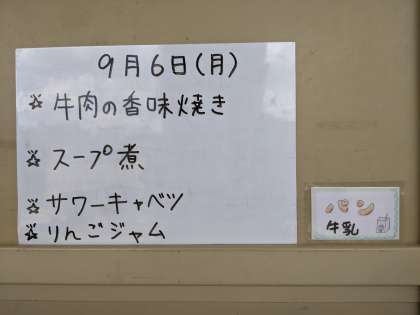 9月6日(月)
☆ 牛肉の香味焼き
☆ スープ煮
☆ サワーキャベツ
☆ りんごジャム
パン
牛乳